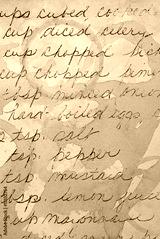 ups cubed cooked
cup diced celery
cup chopped
cup chopped
tbsp. minced onion
hard boiled eggs, c
2 tsp. salt
tsp. pepper
tsp. mustard
tbsp. lemon juice
cup mayonnaise